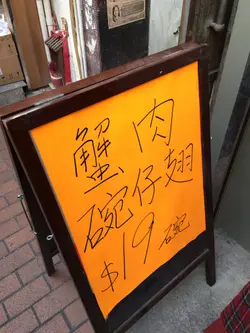 蟹肉
碗仔翅
$19碗